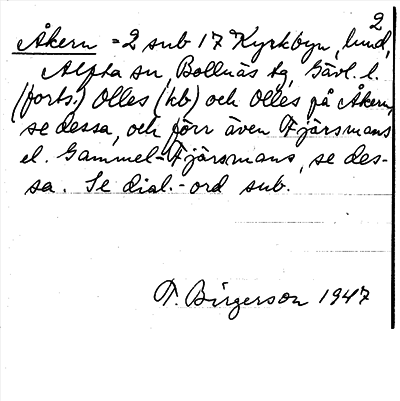 2
Åkern = 2 sub 17 Kyrkbyn, lund,
Alfta sn, Bollnäs tg, Gävl. l.
(forts.) Olles (kb) och Olles på Åkern,
se dessa, och förr även Fjärsmans
el. Gammel-Fjärsmans, se des-
sa. Se dial.-ord sub.
T. Birgerson 1947